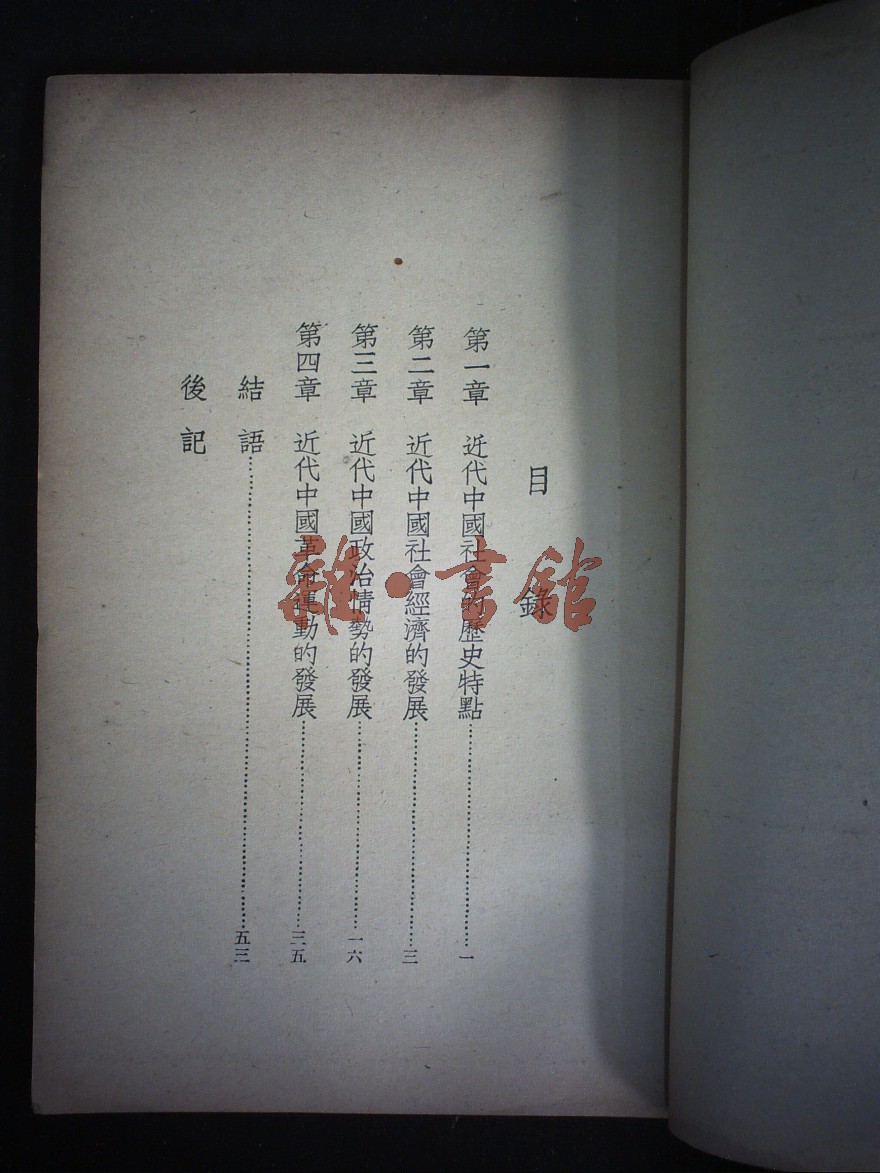 目錄
第一章 近代中國社會的歷史特點……一
第二章 近代中國社會經濟的發展……三
第三章 近代中國政治情勢的發展……一六
第四章 近代中國革命運動的發展……三五
結語……五三
後記
雜·書館